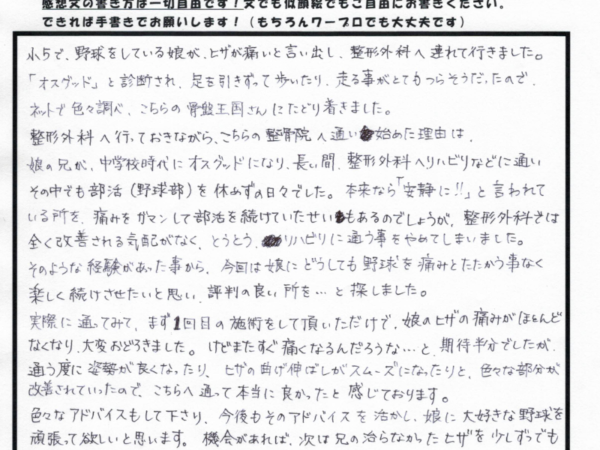 感想文の書き方は一切自由です！文でも似顔絵でもご自由にお書きください。
できれば手書きでお願いします！（もちろんワープロでも大丈夫です）
小5で、野球をしている娘が、ヒザが痛いと言い出し、整形外科へ連れて行きました。
「オスグッド」と診断され、足を引きずって歩いたり、走る事がとてもつらそうだったので、
ネットで色々調べ、こちらの骨盤王国さんにたどり着きました。
整形外科へ行っておきながら、こちらの整骨院へ通い始めた理由は、
娘の兄が、中学校時代にオスグッドになり、長い間、整形外科へリハビリなどに通い
その中でも部活（野球部）を休めずの日々でした。本来なら「安静に!!」と言われて
いる所を、痛みをガマンして部活を続けていたせいもあるのでしょうが、整形外科では
全く改善される気配がなく、とうとう、リハビリに通う事をやめてしまいました。
そのような経験があった事から、今回は娘にどうしても野球を痛みとたたかう事なく
楽しく続けさせたいと思い、評判の良い所を…と探しました。
実際に通ってみて、まず1回目の施術をして頂いただけで、娘のヒザの痛みがほとんど
なくなり、大変おどろきました。けどまたすぐ痛くなるんだろうな…と、期待半分でしたが、
通う度に姿勢が良くなったり、ヒザの曲げ伸ばしがスムーズになったりと、色々な部分が
改善されていったので、こちらへ通って本当に良かったと感じております。
色々なアドバイスもして下さり、今後もそのアドバイスを活かし、娘に大好きな野球を
頑張って欲しいと思います。機会があれば、次は兄の治らなかったヒザを少しずつでも